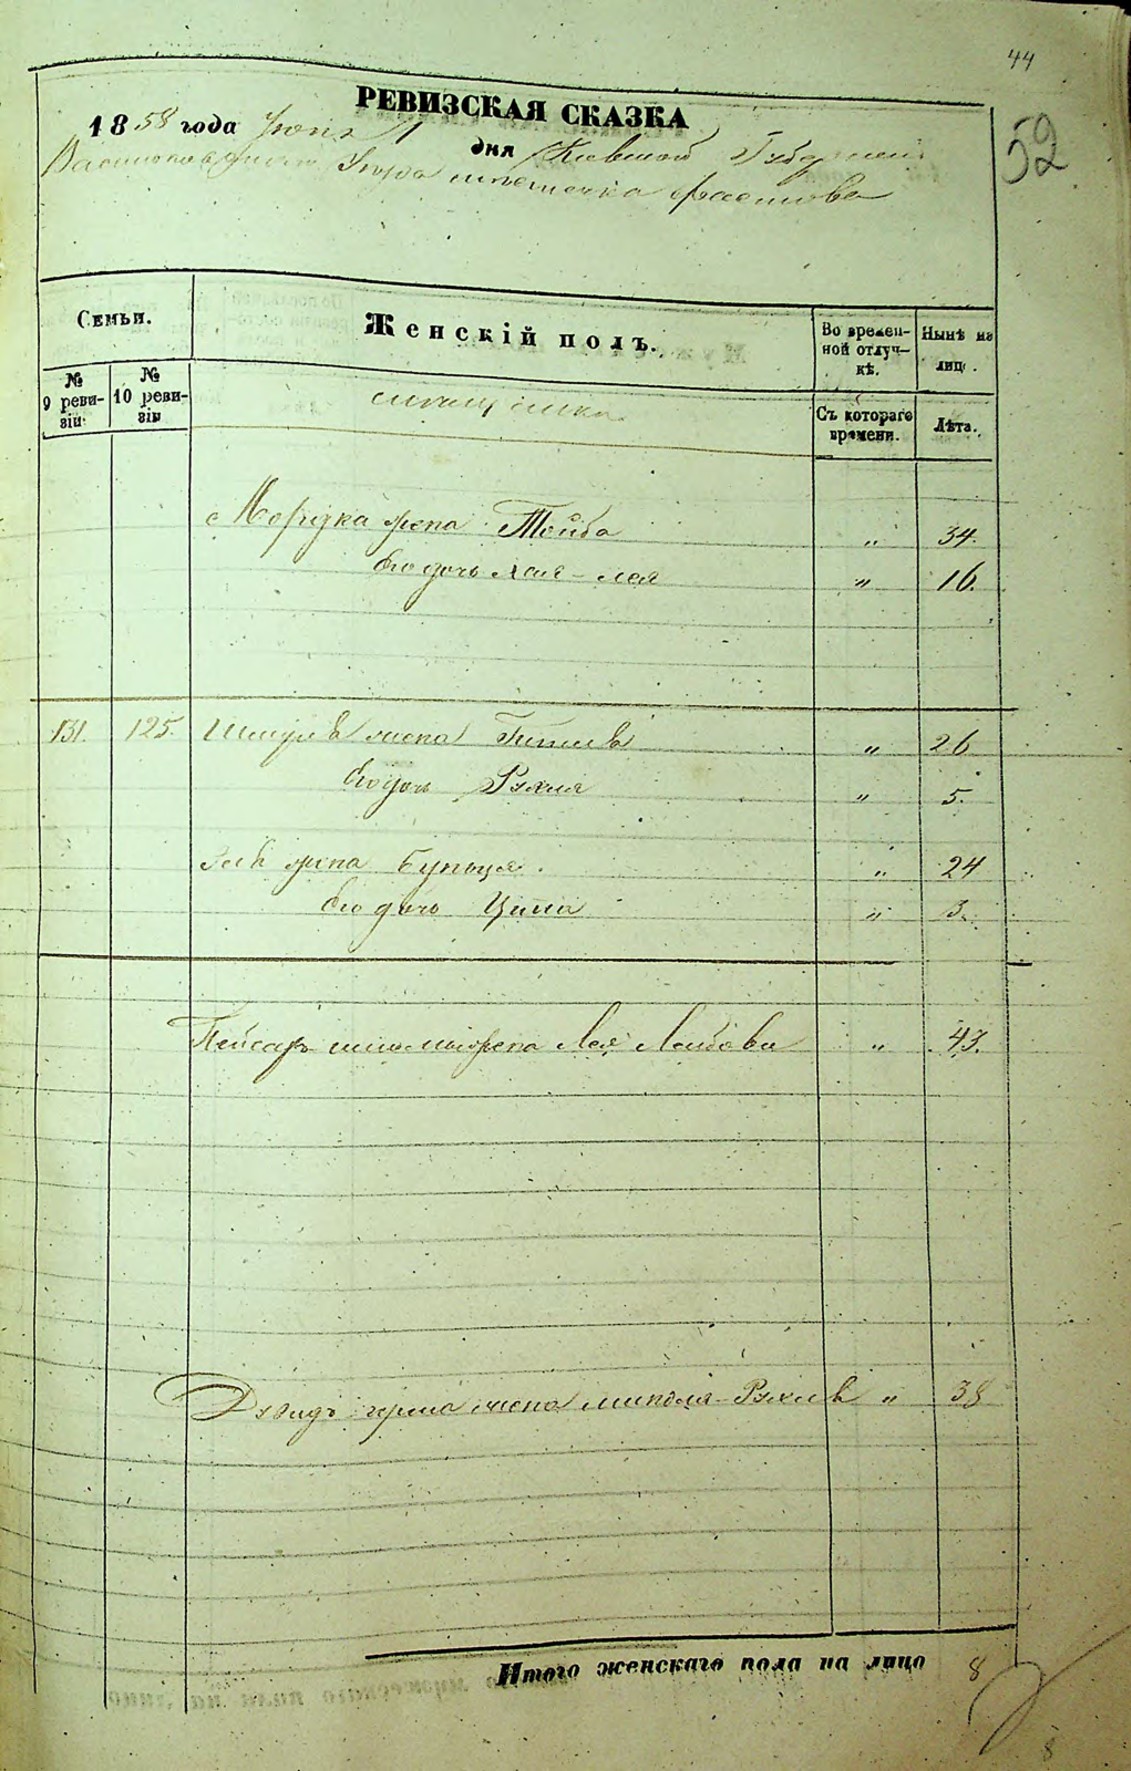 44
52
РЕВИЗСКАЯ СКАЗКА
1858 года Июня 1 дня Киевской Губернии
Васильковскаго Уезда местечка Фастова
Семьи.
Женскій полъ.
Во времен-
ной отлуч-
кѣ.
Нынѣ на
лицо.
№
9 реви-
зіи
№
10 реви-
зіи
Съ котораго
времени.
Лѣта.
Мордка жена Тойба " 34.
Его дочь Хая-Лея " 16.
131. 125. жена " 26
Его дочь Рухля " 5.
жена Бунця " 24
Его дочь Ципа " 3.
Лея Лейбова " 43.
жена Рухля " 38
Итого женскаго пола на лицо 8
8